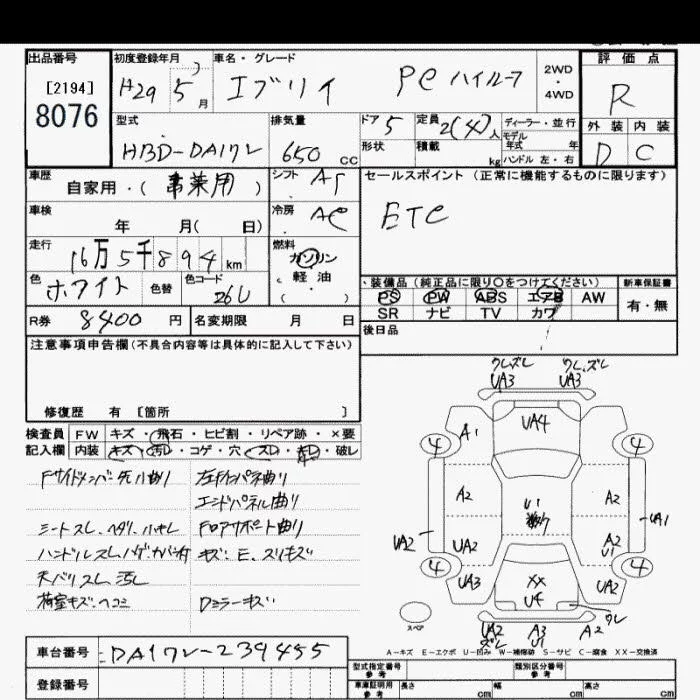 出品番号
[2194]
8076
初度登録年月
H29 5月
車名・グレード
エブリイ PC ハイルーフ
2WD
・
4WD
評価点
R
外装 内装
D C
型式
HBD-DA17V
排気量
650 CC
ドア 5
形状
定員 2(4)人
積載 kg
ディーラー・並行
モデル
年式 年
ハンドル 左・右
車歴
自家用・(事業用)
シフト AT
セールスポイント (正常に機能するものに限ります)
ETC
車検
年 月( 日)
冷房 AC
走行
16万5千894km
燃料
ガソリン
軽・油
( )
色
ホワイト
色替
色コード
26U
装備品 (純正品に限り〇をつけてください)
PS PW ABS エアB AW
SR ナビ TV カワ
新車保証書
有・無
R券 8400円
名変期限 月 日
後日品
注意事項申告欄(不具合内容等は具体的に記入して下さい)
修復歴 有 [箇所 ]
検査員
記入欄
FW キズ・飛石・ヒビ割・リペア跡・×要
内装 キズ・汚レ・コゲ・穴・スレ・切レ・破レ
Fサイドメンバー先小曲り
左Fインパネ曲り
エンドパネル曲り
シートスレ、ヘタリ、小キレ
Fロアサポート曲り
ハンドルスレハゲ、カバーナイ
キズ、E、スリキズ
天バリスレ、汚レ
荷室キズ、ヘコミ
Dミラーキズ
ワレ、ズレ
UA3
ワレ、ズレ
UA3
UA4
A1
4
4
A2
U1
A2
UA1
UA2
UA2
A2
U1
4
4
UA3
XX
U4
UA2
ワレ
スペア
UA2
ズレ
A3
U1
A2
A-キズ E-エクボ U-凹み W-補修跡 S-サビ C-腐食 XX-交換済
車台番号 DA17V-239455
登録番号
型式指定番号
参考
類別区分番号
参考
車庫証明用
参考
長さ cm
幅 cm
高さ cm